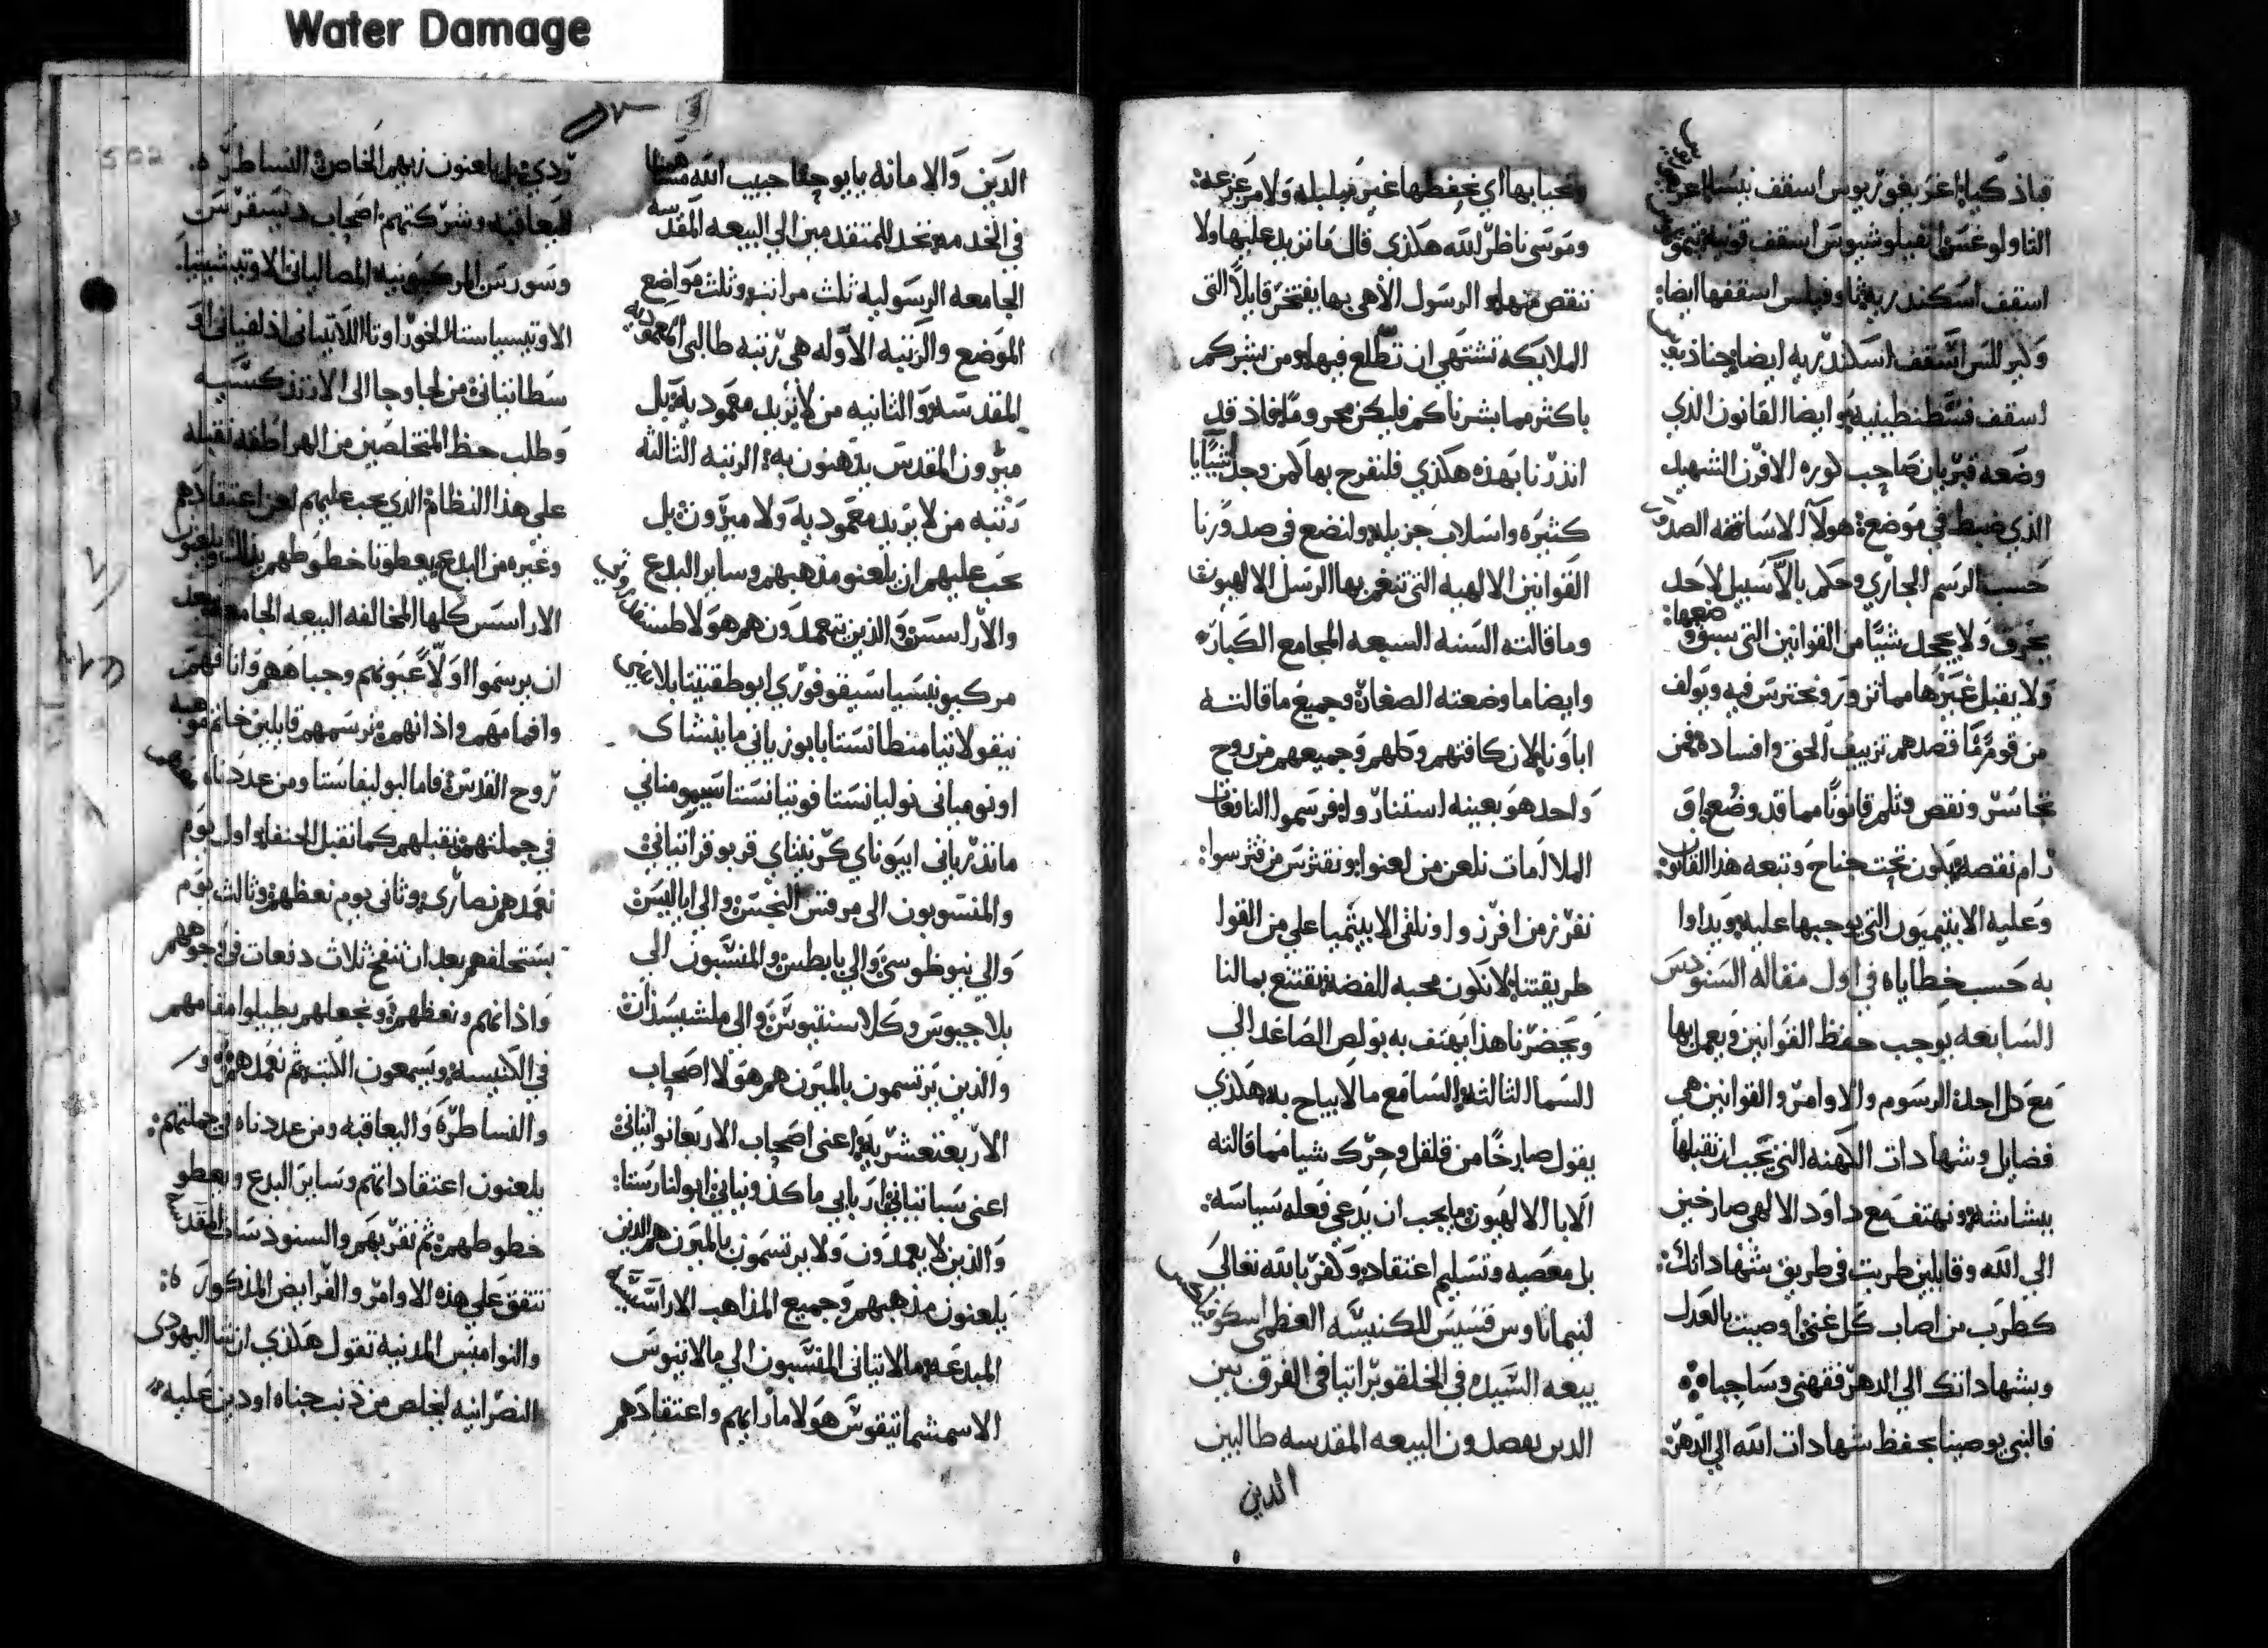 Water Damage
قباذوكيا اغريغوريوس اسقف نيسا
التاولوغس انفيلوشيوس اسقف قونيه تيموتاوس
اسقف اسكندريه ثاوفيلس اسقفها ايضا:
وكيرللس اسقف اسكندريه ايضا جناذيوس
اسقف قسطنطينيه وايضا القانون الذي
وضعه قبريان صاحب كوره الافرن الشهيد
الذي ضبط في موضع هولآ الاساقفه
حسب الرسم الجاري وحكم بالاّ سبيل لاحد
يحرف ولا يجحد شيًا من القوانين التي سبق وضعها:
ولا يقبل غيرها مما تزور ونحترس فيه ويولف
من قوم مّا قصدهم تزييف الحق وافساده فمن
تجاسر ونقص وثلم قانونًا مما قد وضع او
رام نقصه يكون تحت جناح وتبعه هذا القانون:
وعليه الابيتيميون التي يوجبها عليه ويداوا
به حسب خطاياه في اول مقاله السنودس
السابعه يوجب حفظ القوانين ويعمل بها
مع كل احد الرسوم والاوامر والقوانين هي
فضايل وشهادات الكهنه التي يجب ان نقبلها
ببشاشه ونهتف مع داود الالهي صارخين
الي الله وقايلين طربت في طريق شهاداتك:
كطرب من اصاب كل غني اوصيت بالعدل
وبشهاداتك الي الدهر ففهمني وساحيا
فالنبي يوصينا بحفظ شهادات الله الي الدهر:
ونحيا بها اي نحفظها غير متبلبله ولا مزعزعه:
وموسي ناظر الله هكذي قال ما نزيد عليها ولا
ننقص منها والرسول الالاهي بها يفتخر قايلاً التي
الملايكه تشتهي ان تطلع فيها ومن بشركم
باكثر مما بشرناكم فليكن محرومًا فاذ قد
انذرنا بهذه هكذي فلنفرح بها كمن وجد اشيًايا
كثيره واسلاب جزيله ولنضع في صدورنا
القوانين الالهيه التي تنغم بها الرسل الالهيون
وما قالته السته السبعه المجامع الكبار
وايضا ما وضعته الصغار وجميع ما قالته
اباونا لان كافتهم وكلهم وجميعهم من روح
واحد هو بعينه استناروا فرسموا النافعات
الملالمات نلعن من لعنوا ونقترس من قترسوا:
نفرز من افرزوا ونلقي الابيثميا علي من القوا
طريقتنا لا تكون محبه للفضه نقتنع بمالنا
ويحضرنا هذا يهتف به بولص الصاعد الي
السما الثالثه السامع ما لا يباح به هكذي
يقول صارخًا من قلقل وحرك شيا مما قالته
الابا الالهيون ما يجب ان يدعي فعله سياسه:
بل معصيه وتسليم اعتقاد وكفر بالله تعالي
لتيماتاوس قسيس للكنيسه العظمي
بيعه السيده في الخلقوبراتيا في الفرق بين
الدين يقصدون البيعه المقدسه طالبين
الدين
الدين والامانه يا يوحنا حبيب الله
في الخدمه نجد المتقدمين الي البيعه المقدسه
الجامعه الرسوليه ثلث مراتب وثلث مواضع
الموضع والرتبه الاوله هي رتبه طالبي المعموديه
المقدسه والثانيه من لا يريد معموديه بل
ميرون المقدس يدهنون به الرتبه الثالثه
رتبه من لا يريد معموديه ولا ميرون بل
يجب عليهم ان يلعنو مذهبهم وساير البدع
والاراسس والذين يتعمدون هم هولا
مركيونيسيا سيقوفوري ابوطقتيتا
نيقولاتيا منطانستا بابوزياني مانيشاى
اونوميانى نوليانستا فوتيانستا سيمومناني
مانذرياني ابيوناي كرنيثناي قربوقراتياني
والمنسوبون الي مرقس النجس والي
والي نيوطوسي والي بابطس والمنسبون الي
بلاجيوس وكلاسنتيوس والي ملشيسذاق
والذين يرتسمون بالميرن هم هولا اصحاب
الاربعتعشريه اعني اصحاب الاربعا نواتياني
اعني سباتياني ارياني ماكذونياني ابولنارستا:
والذين لا يعمدون ولا يرتسمون بالميرن هم الذين
يلعنون مذهبهم وجميع المذاهب الاراسيسيه
المبدعه مالاتياني المنسبون الي مالاتيوس
الاسمشماتيقوس هولا ما رايهم واعتقادهم
ردي بل يلعنون زيهم الخاص النساطره
اليعاقبه وشركتهم اصحاب ديسقرس
وسورس المركيونيه المصاليانى
الاوتيسياستا
سطانيانى من لجا وجا الي الارثذكسيه
وطلب حظ المتخلصين من الهراطقه نقبله
علي هذا النظام الذي يجب عليهم لعن اعتقادهم
وغيره من البدع يعطونا خطوطهم بذلك ويلعنون
الاراسس كلها المخالفه البيعه الجامعه
ان يرسموا اولاً عيونهم وجباههم وانافهم
وافمامهم واذانهم نرسمهم قايلين خاتم موهبه
روح القدس فاما البوليفاستا ومن عددناه
في جملتهم نقبلهم كما نقبل الحنفا اول يوم
نعمدهم نصارى وثاني يوم نعظهم وثالث يوم
نستحلفهم بعد ان ننفخ ثلاث دفعات في وجوههم
واذانهم ونعظهم ونجعلهم يطيلوا مقامهم
في الكنيسه ويسمعون الكتب ثم نعمدهم و
والنساطره واليعاقبه ومن عددناه في جملتهم:
يلعنون اعتقاداتهم وساير البدع ويعطو
خطوطهم ثم نقربهم والسنودسات المقدسه
تتفق علي هذه الاوامر والفرايض المذكوره:
والنواميس المدنيه تقول هكذي ان تشا اليهودى
النصرانيه لتخلص من ذنب جناه او دين عليه